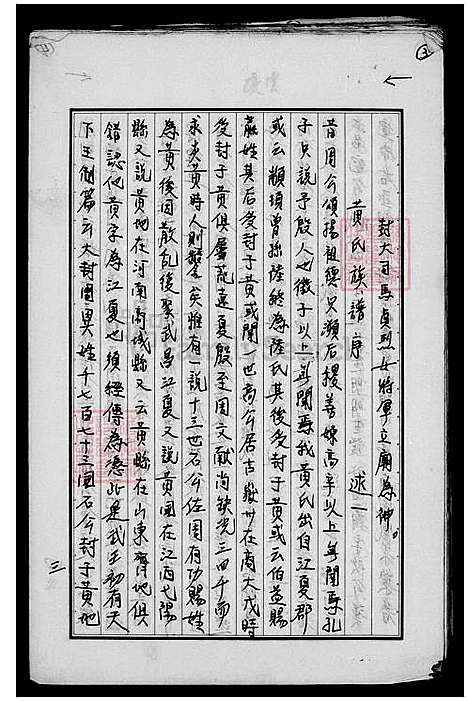 封大司馬貞烈女將軍立廟為神。
黃氏族譜序 述一
昔周公頌揚祖德只瀕后稷姜嫄高辛以上無聞焉孔
子只說予殷人也微子以上無聞焉我黃氏出自江夏郡
或云顓頊曾孫陸終為陸氏其後受封于黃或云伯益賜
嬴姓其后受封于黃或聞一世高公居古 州在商大戊時
受封于黃俱屬荒遠夏殷至周文献尚缺況三四千而
求夫黃時人則 矣雖有一說十三世石公佐周有功賜姓
為黃後因散乱後聚武昌江夏又說黃國在江西弋陽
縣又說黃地在河南商城縣又云黃縣在山東齊地俱
錯認他黃字為江夏也須經傳為憑此是武王初有天
下王制篇云大封國異姓千七百七十三國石公封于黃地
三